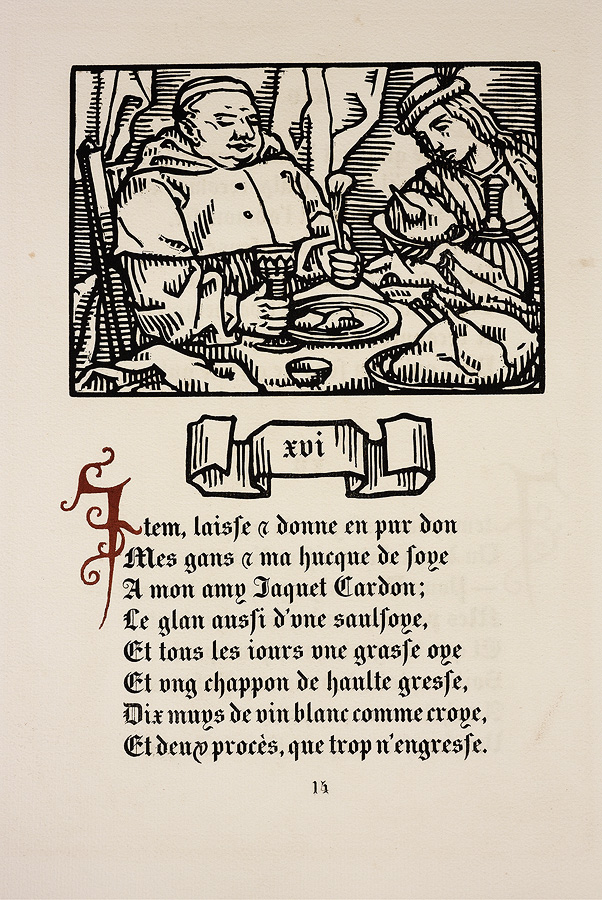 xvi
Item, laisse & donne en pur don
Mes gans & ma hucque de soye
A mon amy Jaquet Cardon;
Le glan aussi d'vne saulsoye,
Et tous les iours vne grasse oye
Et vng chappon de haulte gresse,
Dix muys de vin blanc comme croye,
Et deux procès, que trop n'engresse.
14